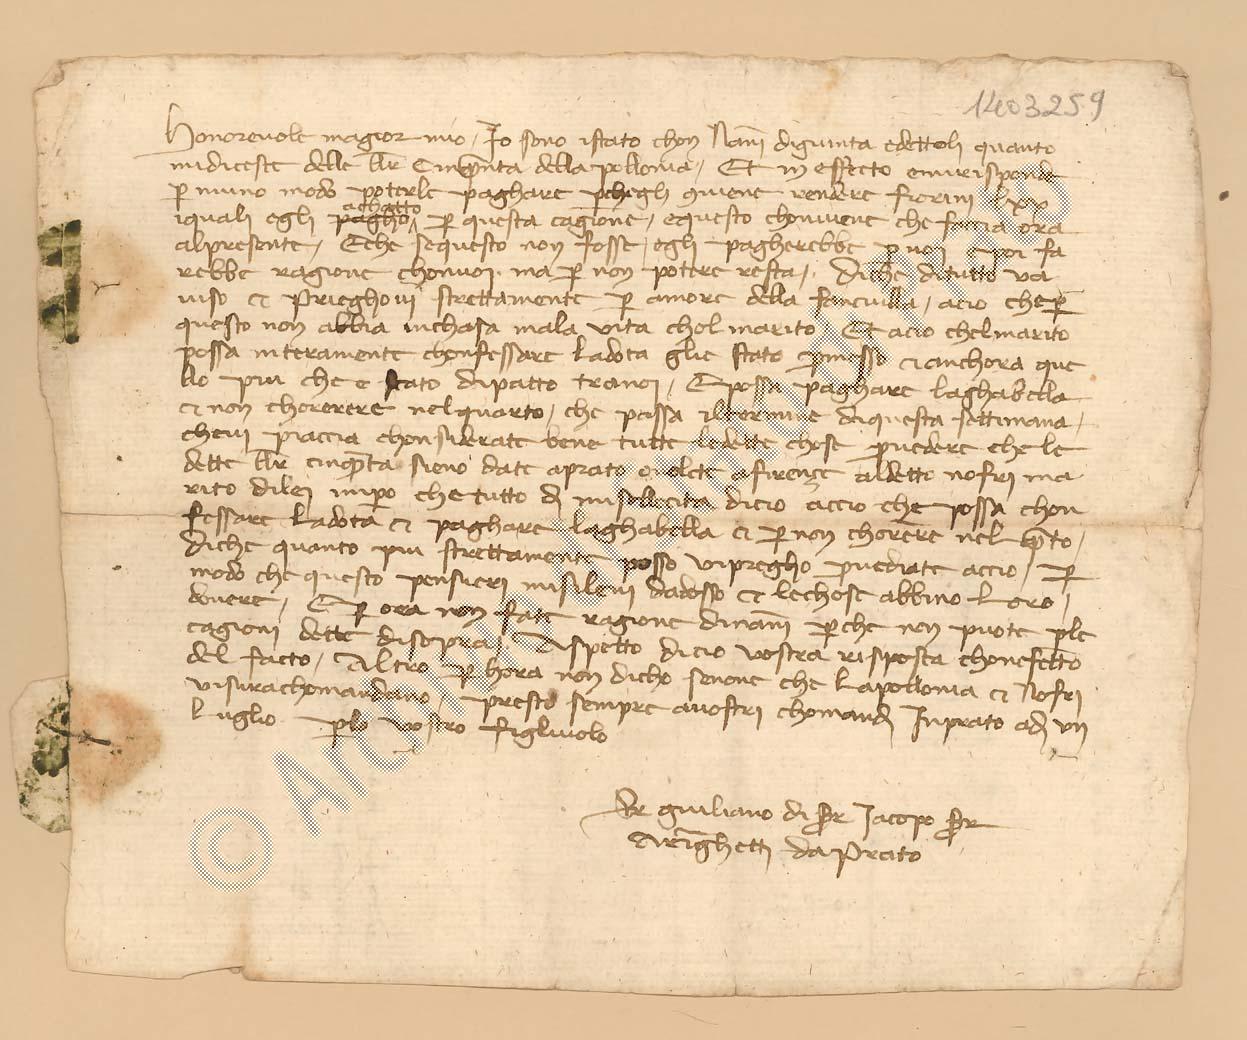 1403259
Honorevole magior mio. Io sono istato chon Nanni diguinta edettoli quanto
midiceste delle lire Cinquanta della pollonia, Et in effecto emirisponde
per niuno modo poterle paghare perchegli conviene rendere fiorini lxx
achatto
iquali egli pagho, per questa cagione, equesto chonviene che faccia ora
alpresente, Eche sequesto non fosse, egli pagherebbe per noi epoi fa
rebbe ragione chonvoi. ma per non potere resta. Diche ditutto va
viso et Prieghovi strettamente per amore della fanciulla, acio che per
questo non abbia inchasa mala vita chol marito Et acio chelmarito
possa interamente chonfessare Ladota glie stato promesso et anchora que
llo piu che e stato dipatto tranoi, E possa paghare laghabella
et non chorerere nelquarto, che passa iltermine diquesta settimana,
chevi piaccia chonsiderate bene tutte ledette chose provedere che le
dette lire cinquanta sieno date aprato o volete afirenze aldetto nofri ma
rito dilei impero che tutto dì misollecita dicio accio che possa chon
fessare Ladota et paghare laghabella et per non chorere nel quarto,
diche quanto piu strettamente posso vipregho provediate accio, per
modo che questo pensieri misilevi dadosso et lechose abbino Loro,
dovere, E per ora non fate ragione dinanni perche non puote per le
cagioni dette disopra. Aspetto dicio vostra risposta chonefetto
del facto. Altro per hora non dicho senone che Lapollonia et Nofri
visirachomandano, presto sempre avostri chomandi Inprato adì vii
Luglio per lo vostro figliuolo
Ser giuliano di Ser Jacopo Ser
Arrighetti da Prato
© Archivio di Stato di Prato